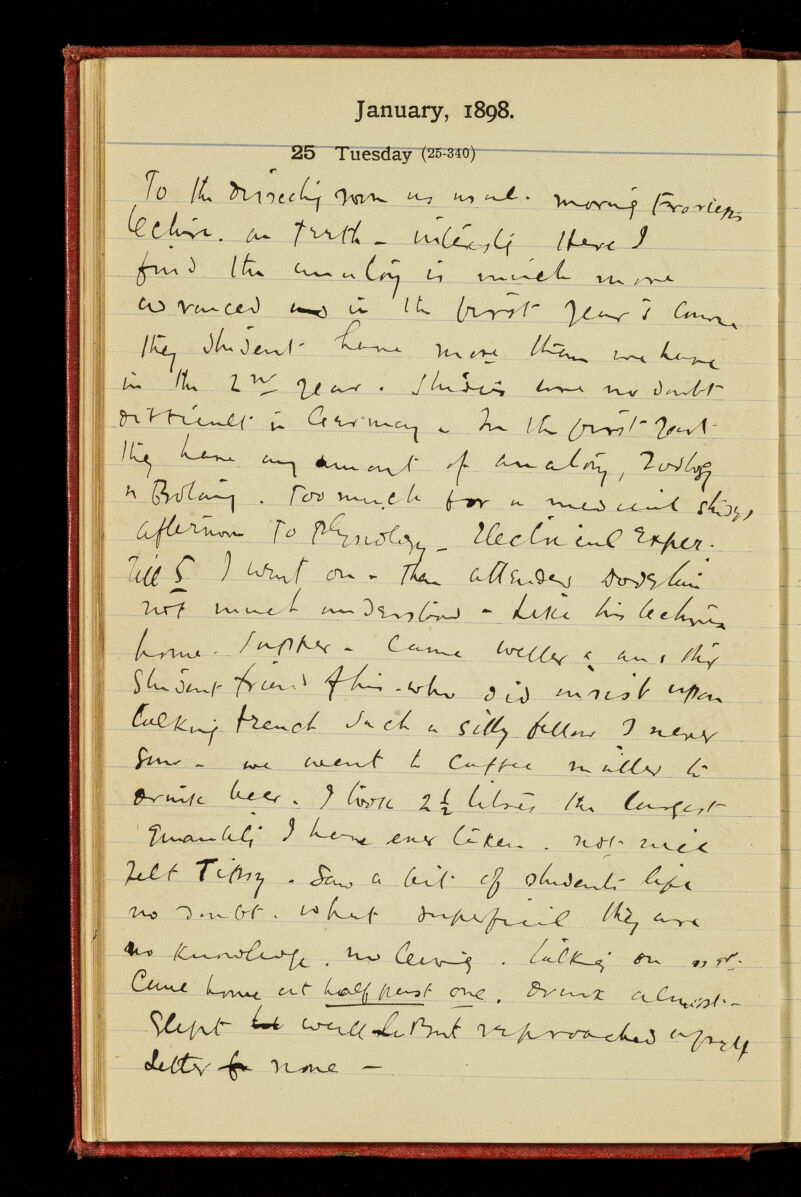 January, 1898.
25 Tuesday (25-340)
To the dissecting room as usual. morning Frorieps
lecture. on teeth - interestig Here I
find the anatoy is much more
advanced and in the first year's Course
they student have more than we have
in the 2nd year. Studies are no doubt
difficult in Germany. In the first year
they have any amount of anatoy, Zoology
& Botany. Too much for a medical study
afternoon To Physiology - Electrical Exper.
till 5 I went on. Then attended
not much understood - Like his lectures
home. Supper - Came Weller & another
Student friend of his. who did insist upon
talking French Such a silly fellow I never
saw - we went to Caffee Müller to
drink beer. I took 2½ litres the largest
Quantity I have ever taken. not nice
Felt Tipsy. Saw a bit of students life
no doubt. what superficial they are
no knowledge. no . talkig on
Came home at half past one. Drunk almost -
Slept well But reproached myself
Letter none -